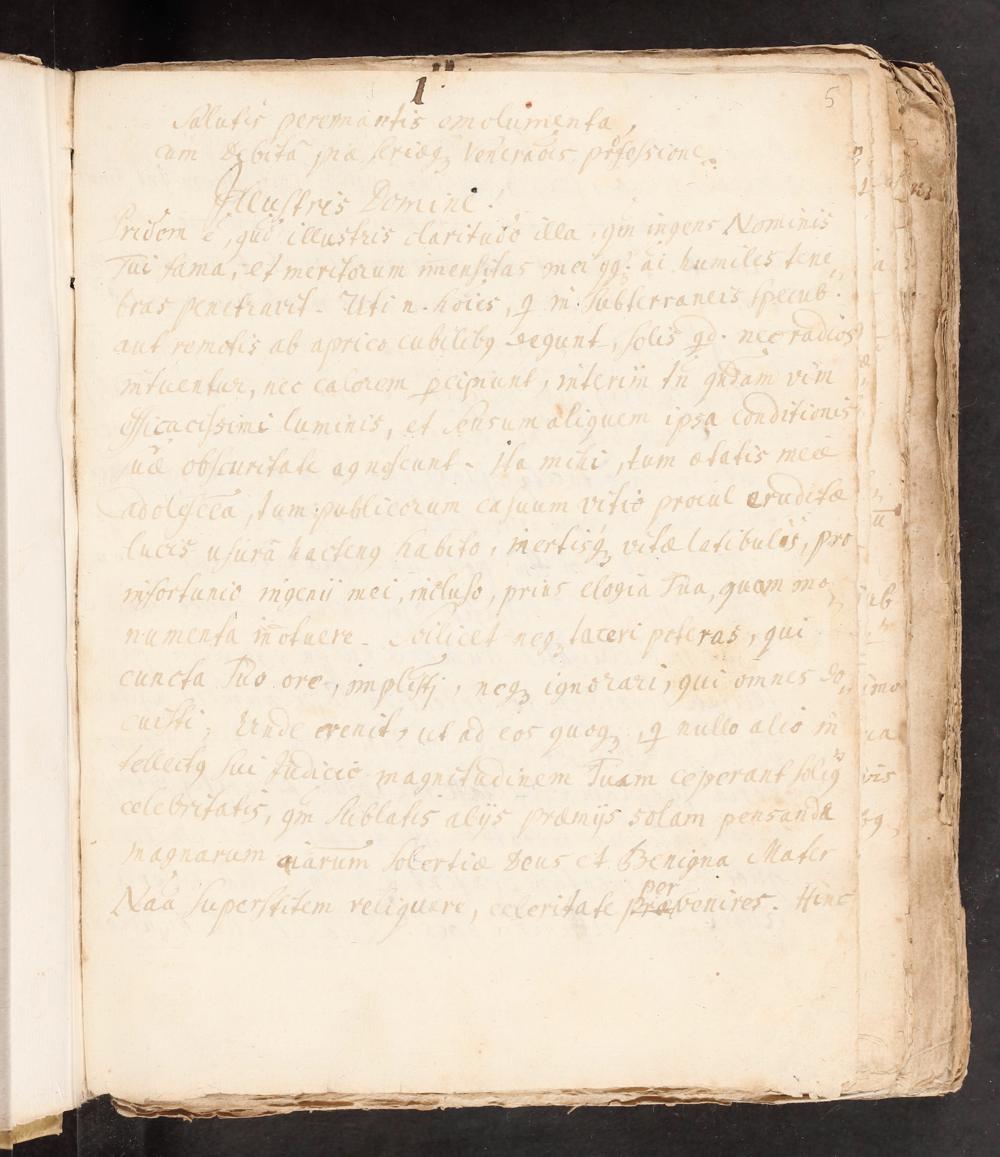 1
5
Salutis perennantis emolumenta,
cum Debitâ piæ seriæq; Veneraõis pr̃fessione.
Illustris Domine!
Pridem ē, quod illustris claritudo illa, qm̃ ingens Nominis
Tui fama, et meritorum im̄ensitas mei qq: ai humiles tene„
bras penetravit. Uti n. hoies, q in subterraneis specub.
aut remotis ab aprico cubilibq degunt, solis qd. nec radios
intuentur, nec calorem pcipiunt, interim tn̄ qndam vim
efficacissimi luminis, et sensum aliquem ipsa conditionis
suæ obscuritate agnoscunt. Ita mihi, tum ætatis meæ
adolescẽa, tum publicorum casuum vitio procul eruditæ
lucis usurâ hactenq habito, inertisq; vitæ latibulis, pro
infortunio ingenii mei, incluso, prius elogia Tua, quam mo„
numenta in̄otuere. Scilicet neq; taceri poteras, qui
cuncta Tuo ore, implesti, neq; ignorari, qui omnes do„
cuisti; Unde evenit, ut ad eos quoq;, q nullo alio in
tellectq sui Judicio magnitudinem Tuam ceperant soliq
celebritatis, qm̃ sublatis alijs præmijs solam pensandæ
magnarum aiarum solertiæ Deus et Benigna Mater
Naã superstitem reliquere, celeritate prævenires per. Hinc